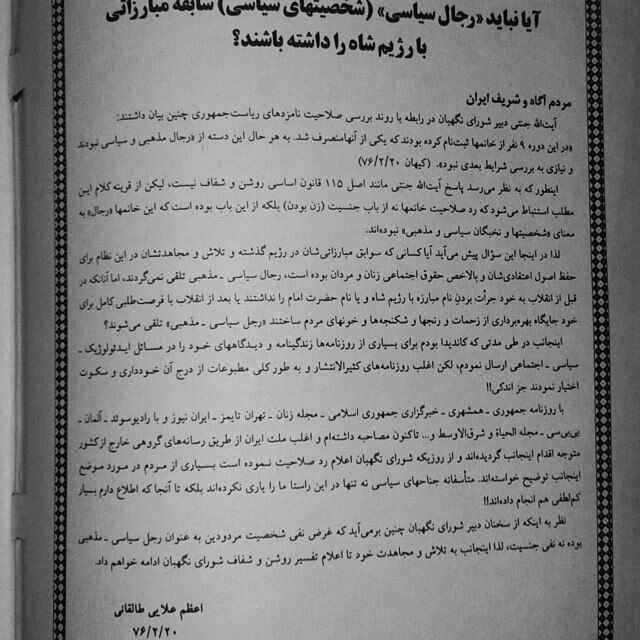 آیا نباید «رجال سیاسی» (شخصیتهای سیاسی) سابقه مبارزاتی
با رژیم شاه را داشته باشند؟
مردم آگاه و شریف ایران
آیت‌الله جنتی دبیر شورای نگهبان در رابطه با روند بررسی صلاحیت نامزدهای ریاست‌جمهوری چنین بیان داشتند:
«در این دوره ۹ نفر از خانمها ثبت‌نام کرده بودند که یکی از آنهامنصرف شد. به هر حال این دسته از «رجال مذهبی و سیاسی نبودند
و نیازی به بررسی شرایط بعدی نبود». (کیهان ۷۶/۲/۲۰)
اینطور که به نظر می‌رسد پاسخ آیت‌الله جنتی مانند اصل ۱۱۵ قانون اساسی روشن و شفاف نیست، لیکن از قرینه کلام این
مطلب استنباط می‌شود که رد صلاحیت خانمها نه از باب جنسیت (زن بودن) بلکه از این باب بوده است که این خانمها «رجال» به
معنای «شخصیتها و نخبگان سیاسی و مذهبی» نبوده‌اند.
لذا در اینجا این سؤال پیش می‌آید آیا کسانی که سوابق مبارزاتی‌شان در رژیم گذشته و تلاش و مجاهدتشان در این نظام برای
حفظ اصول اعتقادی‌شان و بالاخص حقوق اجتماعی زنان و مردان بوده است، رجال سیاسی ـ مذهبی تلقی نمی‌گردند، اما آنانکه در
قبل از انقلاب به خود جرأت بردنِ نام مبارزه با رژیم شاه و یا نام حضرت امام را نداشتند یا بعد از انقلاب با فرصت‌طلبی کامل برای
خود جایگاه بهره‌برداری از زحمات و رنجها و شکنجه‌ها و خونهای مردم ساختند «رجل سیاسی ـ مذهبی» تلقی می‌شوند؟
اینجانب در طی مدتی که کاندیدا بودم برای بسیاری از روزنامه‌ها زندگینامه و دیدگاههای خود را در مسائل ایدئولوژیک ـ
سیاسی ـ اجتماعی ارسال نمودم، لکن اغلب روزنامه‌های کثیرالانتشار و به طور کلی مطبوعات از درج آن خودداری و سکوت
اختیار نمودند جز اندکی!!
با روزنامه جمهوری ـ همشهری ـ خبرگزاری جمهوری اسلامی ـ مجله زنان ـ تهران تایمز ـ ایران نیوز و با رادیو سوئد ـ آلمان ـ
بی‌بی‌سی ـ مجله الحیاة و شرق‌الاوسط و... تاکنون مصاحبه داشته‌ام و اغلب ملت ایران از طریق رسانه‌های گروهی خارج از کشور
متوجه اقدام اینجانب گردیده‌اند و از روزیکه شورای نگهبان اعلام رد صلاحیت نموده است بسیاری از مردم در مورد موضع
اینجانب توضیح خواسته‌اند. متأسفانه جناحهای سیاسی نه تنها در این راستا ما را یاری نکرده‌اند بلکه تا آنجا که اطلاع دارم بسیار
کم‌لطفی هم انجام داده‌اند!!
نظر به اینکه از سخنان دبیر شورای نگهبان چنین برمی‌آید که غرض نفی شخصیت مردودین به عنوان رجل سیاسی ـ مذهبی
بوده نه نفی جنسیت، لذا اینجانب به تلاش و مجاهدت خود تا اعلام تفسیر روشن و شفاف شورای نگهبان ادامه خواهم داد.
اعظم علایی طالقانی
۷۶/۲/۲۰